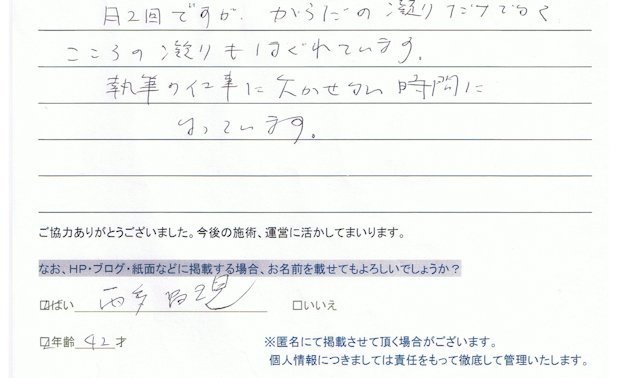 月2回ですが、からだの凝りだけでなく
こころの凝りもほぐれています。
執筆の仕事に欠かせない時間に
なっています。
ご協力ありがとうございました。今後の施術、運営に活かしてまいります。
なお、HP・ブログ・紙面などに掲載する場合、お名前を載せてもよろしいでしょうか？
☑はい □いいえ
☑年齢 42 才 ※匿名にて掲載させて頂く場合がございます。
個人情報につきましては責任をもって徹底して管理いたします。